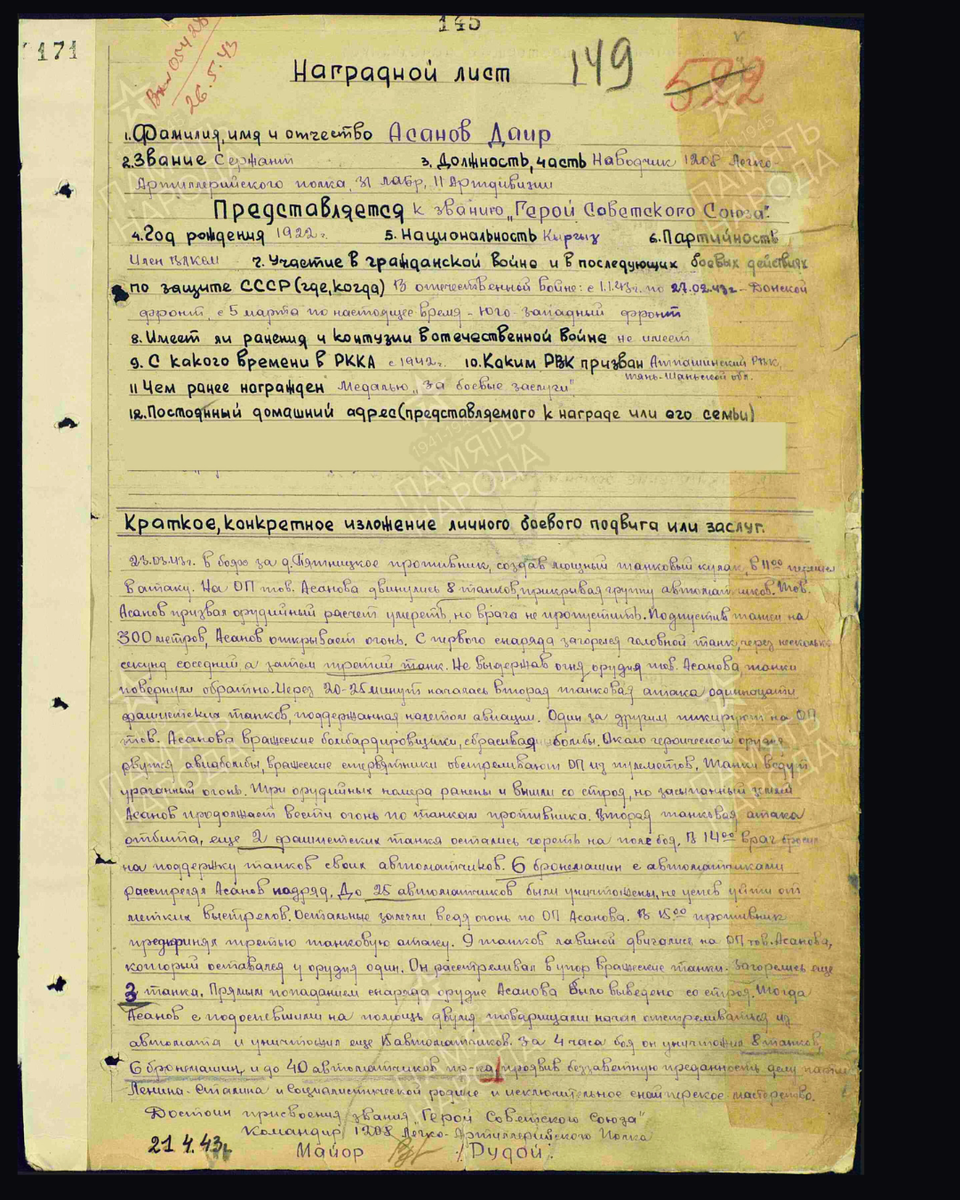 145
171
Вх № 05428
26.5.43
149
522
Наградной лист
1. Фамилия, имя и отчество Асанов Даир
2. Звание Сержант 3. Должность, часть Наводчик 1208 Легко-
Артиллерийского полка, 31 лабр, 11 Артдивизии
Представляется к званию „Герой Советского Союза".
4. Год рождения 1922 г. 5. Национальность Кыргыз 6. Партийность
Член ВЛКСМ 7. Участие в гражданской войне и в последующих боевых действиях
по защите СССР (где, когда) В отечественной войне: с 1.1.43г. по 23.02.43г - Донской
фронт, с 5 марта по настоящее время - Юго-западный фронт
8. Имеет ли ранения и контузии в отечественной войне не имеет
9. С какого времени в РККА с 1942 г. 10. Каким РВК призван Атпашинский РВК,
Тянь-Шаньской обл.
11 Чем ранее награжден Медалью „За боевые заслуги".
12. Постоянный домашний адрес (представляемого к награде или его семьи)
Краткое, конкретное изложение личного боевого подвига или заслуг.
23.03.43г. в боях за д. Пятницкое противник, создав мощный танковый кулак, в 11⁰⁰ перешел
в атаку. На ОП тов. Асанова двинулись 8 танков, прикрывая группу автоматчиков. Тов.
Асанов призвал орудийный расчет умереть, но врага не пропустить. Подпустив танки на
300 метров, Асанов открывает огонь. С первого снаряда загорелся головной танк, через несколько
секунд соседний а затем третий танк. Не выдержав огня орудия тов. Асанова, танки
повернули обратно. Через 20-25 минут началась вторая танковая атака одиннадцати
фашистских танков, поддержанная налетом авиации. Один за другим пикируют на ОП
тов. Асанова вражеские бомбардировщики, сбрасывая бомбы. Около героической орудия
рвутся авиабомбы, вражеские стервятники обстреливают ОП из пулеметов. Танки ведут
ураганный огонь. Три орудийных номера ранены и вышли со строя, но засыпанный землей
Асанов продолжает вести огонь по танкам противника. Вторая танковая атака
отбита, еще 2 фашистских танка остались гореть на поле боя. В 14⁰⁰ враг бросил
на поддержку танков своих автоматчиков. 6 бронемашин с автоматчиками
расстрелял Асанов подряд. До 25 автоматчиков были уничтожены, не успев уйти от
метких выстрелов. Остальные залегли ведя огонь по ОП Асанова. В 15⁰⁰ противник
предпринял третью танковую атаку. 9 танков лавиной двигались на ОП тов. Асанова,
который оставался у орудия один. Он расстреливал в упор вражеские танки. Загорелись еще
3 танка. Прямым попаданием снаряда орудие Асанова было выведено со строя. Тогда
Асанов с подоспевшими на помощь двумя товарищами начал отстреливаться из
автомата и уничтожил еще 15 автоматчиков. За 4 часа боя он уничтожил 8 танков,
6 бронемашин, и до 40 автоматчиков пр-ка, проявив беззаветную преданность делу партии
Ленина-Сталина и социалистической родине и исключительное снайперское мастерство.
Достоин присвоения звания „Герой Советского Союза"
Командир 1208 Легко-Артиллерийского Полка
21 4. 43г Майор /Рудой/.
ПАМЯТЬ НАРОДА
1941-1945